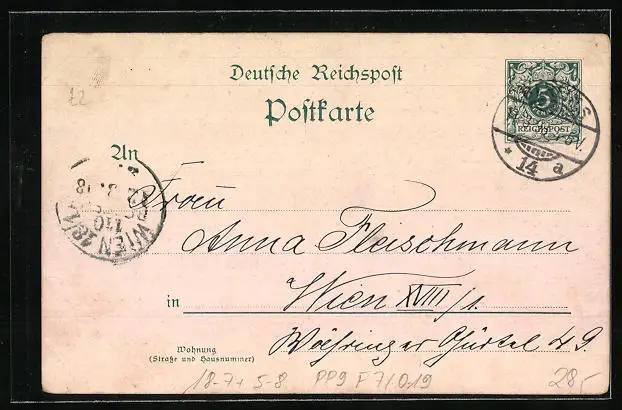 22
Deutsche Reichspost
Postkarte
5
REICHSPOST
* 14 a
An
WIEN 18/1
110
Frau
Anna Fleischmann
in Wien XVIII/1.
Wohnung
(Straße und Hausnummer)
Währinger Gürtel 49.
18-7+5-8 PP9 F71019
28,-